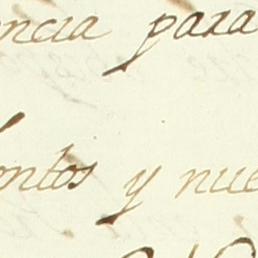 encia para
ontos y nue